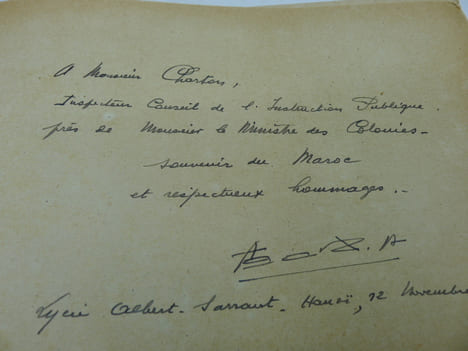 A Monsieur Charton,
Inspecteur Conseil de l'Instruction Publique
près de Monsieur le Ministre des Colonies -
souvenir du Maroc
et respectueux hommages. -
Lycée Albert - Sarraut - Hanoï, 12 Novembre